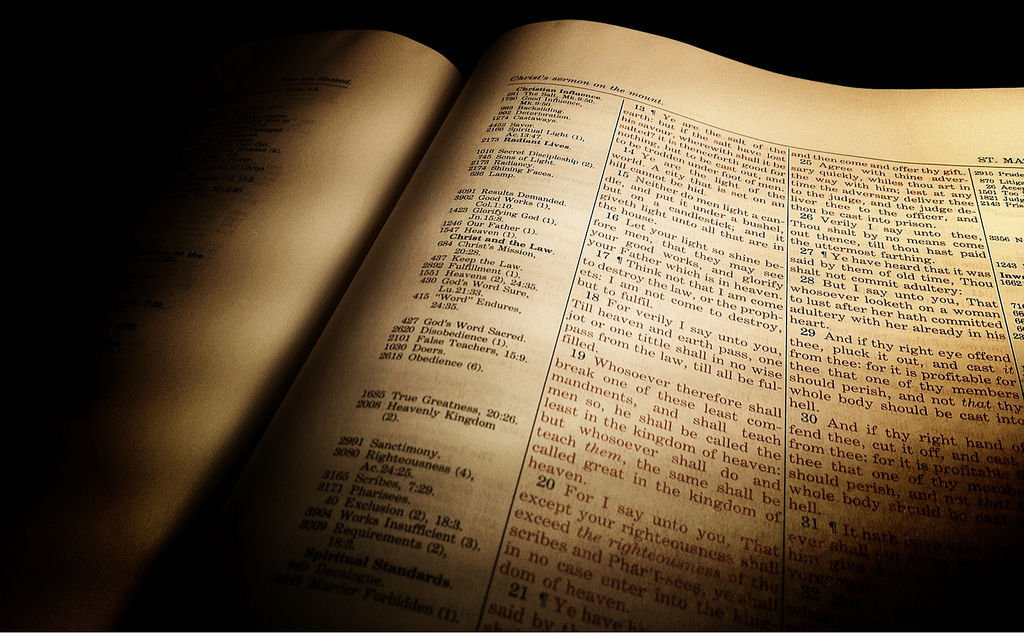 Christ's sermon on the mount.
Christian Influence.
Mk.9:50.
1780 Good Influence,
Mk.9:50.
993 Backsliding.
992 Deterioration.
1274 Castaways.
4452 Savor.
2166 Spiritual Light (1),
Ac.13:47.
2173 Radiant Lives.
1016 Secret Discipleship (2).
745 Sons of Light.
2173 Radiancy.
2174 Shining Faces.
636 Lamp.
4091 Results Demanded.
3902 Good Works (1),
Col.1:10.
1423 Glorifying God (1),
Jn.15:8.
1246 Our Father (1).
1547 Heaven (1).
Christ and the Law.
684 Christ's Mission,
20:28.
437 Keep the Law.
2892 Fulfillment (1).
1551 Heavens (2), 24:35.
430 God's Word Sure,
Lu.21:33.
415 "Word" Endures,
24:35.
427 God's Word Sacred.
2620 Disobedience (1).
2101 False Teachers, 15:9.
1030 Doers.
2618 Obedience (6).
1685 True Greatness, 20:26.
2008 Heavenly Kingdom
(2).
2991 Sanctimony.
3080 Righteousness (4),
Ac.24:25.
3165 Scribes, 7:29.
3171 Pharisees.
40 Exclusion (2), 18:3.
3904 Works Insufficient (3).
3009 Requirements (2),
18:3.
Spiritual Standards.
949 Decalogue,
Murder Forbidden (1).
13 ¶ Ye are the salt of the
earth: but if the salt have lost
his savour, wherewith shall it be
salted? it is thenceforth good for
nothing, but to be cast out, and
to be trodden under foot of men.
14 Ye are the light of the
world. A city that is set on an
hill cannot be hid.
15 Neither do men light a can-
dle, and put it under a bushel,
but on a candlestick; and it
giveth light unto all that are in
the house.
16 Let your light so shine be-
fore men, that they may see
your good works, and glorify
your Father which is in heaven.
17 ¶ Think not that I am come
to destroy the law, or the proph-
ets: I am not come to destroy,
but to fulfil.
18 For verily I say unto you,
Till heaven and earth pass, one
jot or one tittle shall in no wise
pass from the law, till all be ful-
filled.
19 Whosoever therefore shall
break one of these least com-
mandments, and shall teach
men so, he shall be called the
least in the kingdom of heaven:
but whosoever shall do and
teach them, the same shall be
called great in the kingdom of
heaven.
20 For I say unto you, That
except your righteousness shall
exceed the righteousness of the
scribes and Phar'i-sees, ye shall
in no case enter into the king-
dom of heaven.
21 ¶ Ye have
said by
ST. MA
and then come and offer thy gift.
25 Agree with thine adver-
sary quickly, whiles thou art in
the way with him; lest at any
time the adversary deliver thee
to the judge, and the judge de-
liver thee to the officer, and
thou be cast into prison.
26 Verily I say unto thee,
Thou shalt by no means come
out thence, till thou hast paid
the uttermost farthing.
27 ¶ Ye have heard that it was
said by them of old time, Thou
shalt not commit adultery:
28 But I say unto you, That
whosoever looketh on a woman
to lust after her hath committed
adultery with her already in his
heart.
29 And if thy right eye offend
thee, pluck it out, and cast it
from thee: for it is profitable for
thee that one of thy members
should perish, and not that thy
whole body should be cast into
hell.
30 And if thy right hand of-
fend thee, cut it off, and cast
from thee: for it is profitable
thee that one of thy
should perish, and not that
whole body should be cast
hell.
31 ¶ It hath been
ever shall
him give
32
2915
870
26
1501 Too
1821
2142
3356
1243
1662